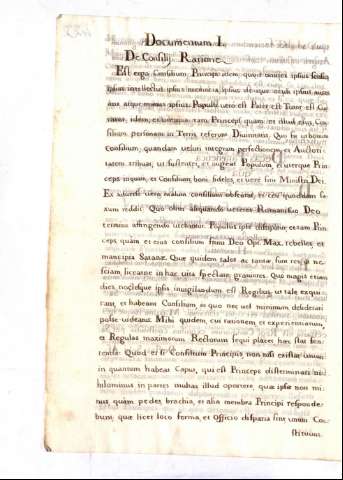 Documentum I.
De Consilij Ratione
Est ergo Consilium Principis idem, quod omnes ipsius sensus
ipsius intellectus, ipsius memoria, ipsius denique oculi, ipsius aures
atque manus ipsius. Populo vero est Pater est Tutor est Cu
rator, idem, et omnes, tam Princeps, quam et illud eius, Con
silium personam in Terris referunt Divinitatis. Quo sit ut bonum
Consilium, quandam velut integram perfectionem, et Auctori
tatem tribuat, ut sustentet, et augeat Populum, et uterque Prin
ceps inquam, et Consilium, boni, fideles, et vere sint Ministri Dei.
Ex adverso vero malum consilium
xum reddit. Quo olim aliquando veteres Romani suo Deo
termino affingendo utebantur. Populus ipse dissipatur, et tam Prin
ceps quam et eius consilium fiunt Deo Opt. Max. rebelles, et
mancipia Satanae. Quae quidem tales ac tantae sunt res, ut ne
sciam, liceat ne in hac vita spectari graviores. Quo magis etiam
dies noctesque ipsis invigilandum est Regibus, ut tale exqui
rant, et habeant Consilium, in quo nec vel minimum desiderari
posse videatur. Mihi quidem, cui rationem, et experimentum,
et Regulas maximorum Rectorum sequi placet, haec stat sen
tentia: Quod etsi Consilium Principis non nisi existat unum
in quantum habeat Caput, qui est Princeps disterminari ni
hilominus in partes multas illud oportere, quae ipsae non mi
nus, quam pedes, brachia, et alia membra Principi responde
bunt, quae licet loco forma, et Officio disparia sint, unum Con
stituunt